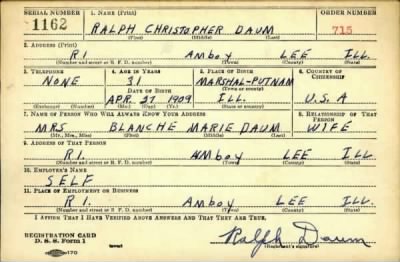 SERIAL NUMBER 1. NAME (Print) ORDER NUMBER
1162 RALPH CHRISTOPHER DAUM 715
(First) (Middle) (Last)
2. ADDRESS (Print)
R1 AMBOY LEE ILL.
(Number and street or R. F. D. number) (Town) (County) (State)
3. TELEPHONE 4. AGE IN YEARS 5. PLACE OF BIRTH 6. COUNTRY OF CITIZENSHIP
NONE 31 MARSHAL-PUTNAM
DATE OF BIRTH (Town or county)
APR. 27 1909 ILL. U.S.A
(Mo.) (Day) (Yr.) (State or country)
7. NAME OF PERSON WHO WILL ALWAYS KNOW YOUR ADDRESS 8. RELATIONSHIP OF THAT PERSON
MRS BLANCHE MARIE DAUM WIFE
(Mr., Mrs., Miss) (First) (Middle) (Last)
9. ADDRESS OF THAT PERSON
R1. AMBOY LEE ILL.
(Number and street or R. F. D. number) (Town) (County) (State)
10. EMPLOYER'S NAME
SELF
11. PLACE OF EMPLOYMENT OR BUSINESS
R1. AMBOY LEE ILL.
(Number and street or R. F. D. number) (Town) (County) (State)
I AFFIRM THAT I HAVE VERIFIED ABOVE ANSWERS AND THAT THEY ARE TRUE.
REGISTRATION CARD
D. S. S. Form 1 Ralph Daum
(Registrant's signature)